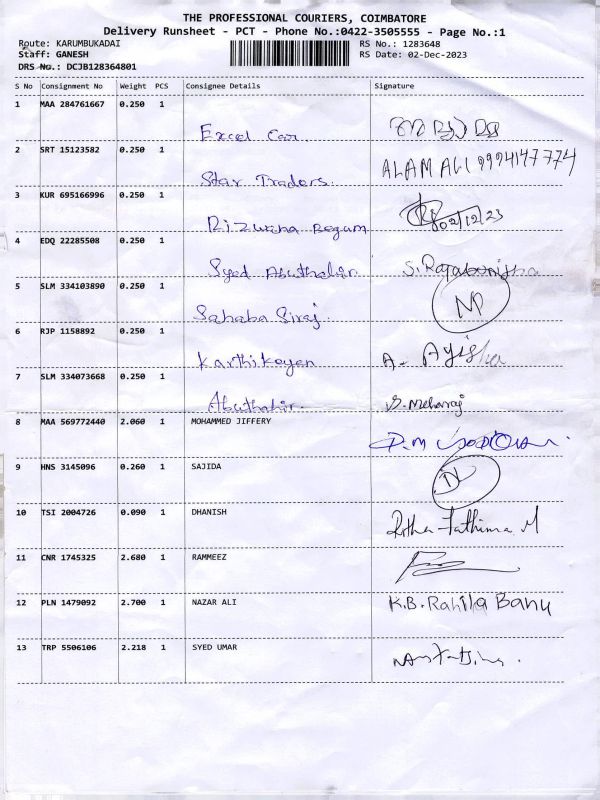 THE PROFESSIONAL COURIERS, COIMBATORE
Delivery Runsheet - PCT - Phone No.:0422-3505555 - Page No.:1
Route: KARUMBUKADAI
RS No.: 1283648
Staff: GANESH
RS Date: 02-Dec-2023
DRS No.: DCJB128364801
S No Consignment No Weight PCS Consignee Details Signature
1 MAA 284761667 0.250 1
Excel Car
2 SRT 15123582 0.250 1
ALAM ALI 9994147774
Star Traders.
3 KUR 695166996 0.250 1
02/12/23
Rizwana Begam
4 EDQ 22285508 0.250 1
Syed Abuthahir S. Rajabunisha
5 SLM 334103890 0.250 1
NP
Sahaba Siraj
6 RJP 1158892 0.250 1
Karthikeyen A. Ayisha
7 SLM 334073668 0.250 1
Abuthahir S. Meharaj
8 MAA 569772440 2.060 1 MOHAMMED JIFFERY
D.M
9 HNS 3145096 0.260 1 SAJIDA
10 TSI 2004726 0.090 1 DHANISH
Fathima M
11 CNR 1745325 2.680 1 RAMMEEZ
12 PLN 1479092 2.700 1 NAZAR ALI K.B. Rahila Banu
13 TRP 5506106 2.218 1 SYED UMAR